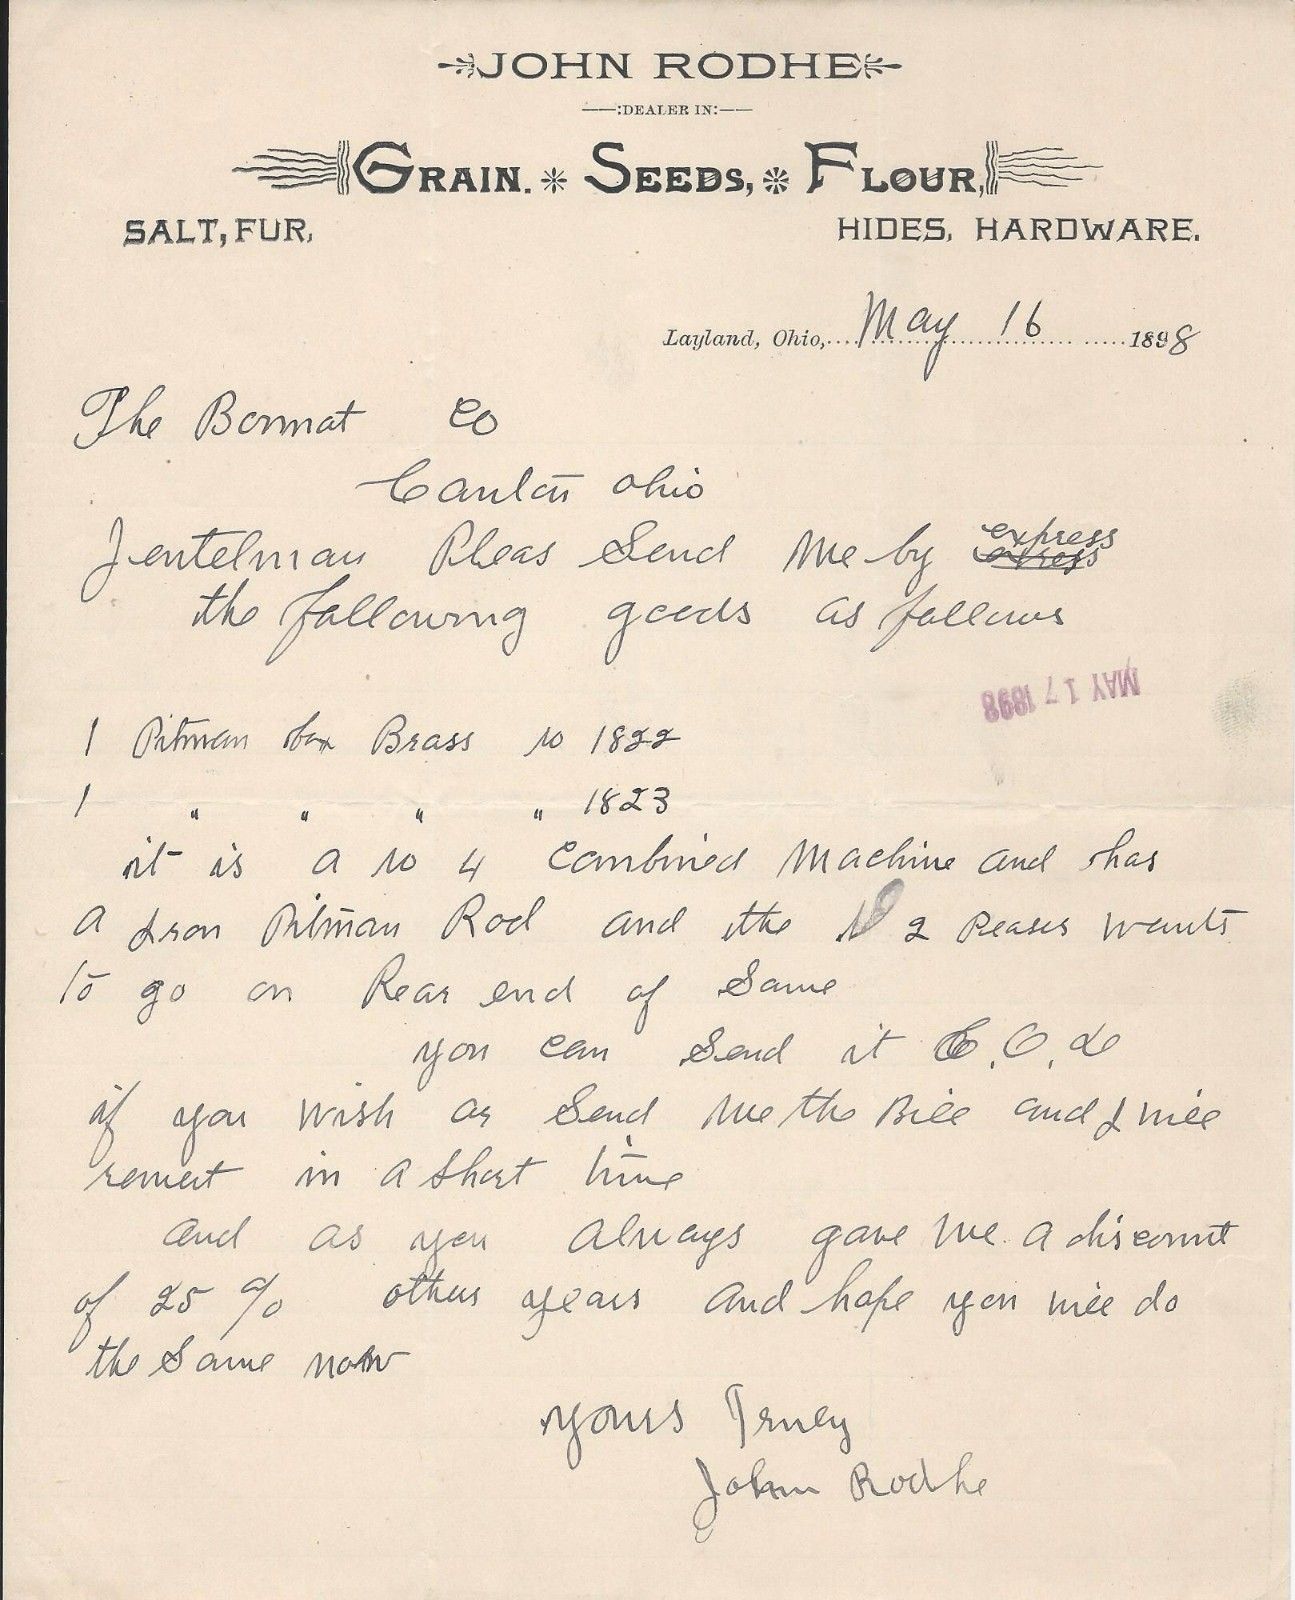 JOHN RODHE
:DEALER IN:
GRAIN. * SEEDS, * FLOUR,
SALT, FUR, HIDES, HARDWARE.
Layland, Ohio, May 16 1898
The Bonnat Co
Canton Ohio
Jentelman Pleas Send Me by express
the following goods as follows
MAY 17 1898
1 Pitman box Brass No 1822
1 " " " " 1823
it is a No 4 Combined Machine and has
a Iron Pitman Rod and the 2 Peases wants
to go on Rear end of Same
you can Send it C.O.D
if you wish or Send Me the Bill and I will
remit in a Short time
and as you always gave Me a discount
of 25 % others years and hope you will do
the Same now
yours Truly
John Rodhe